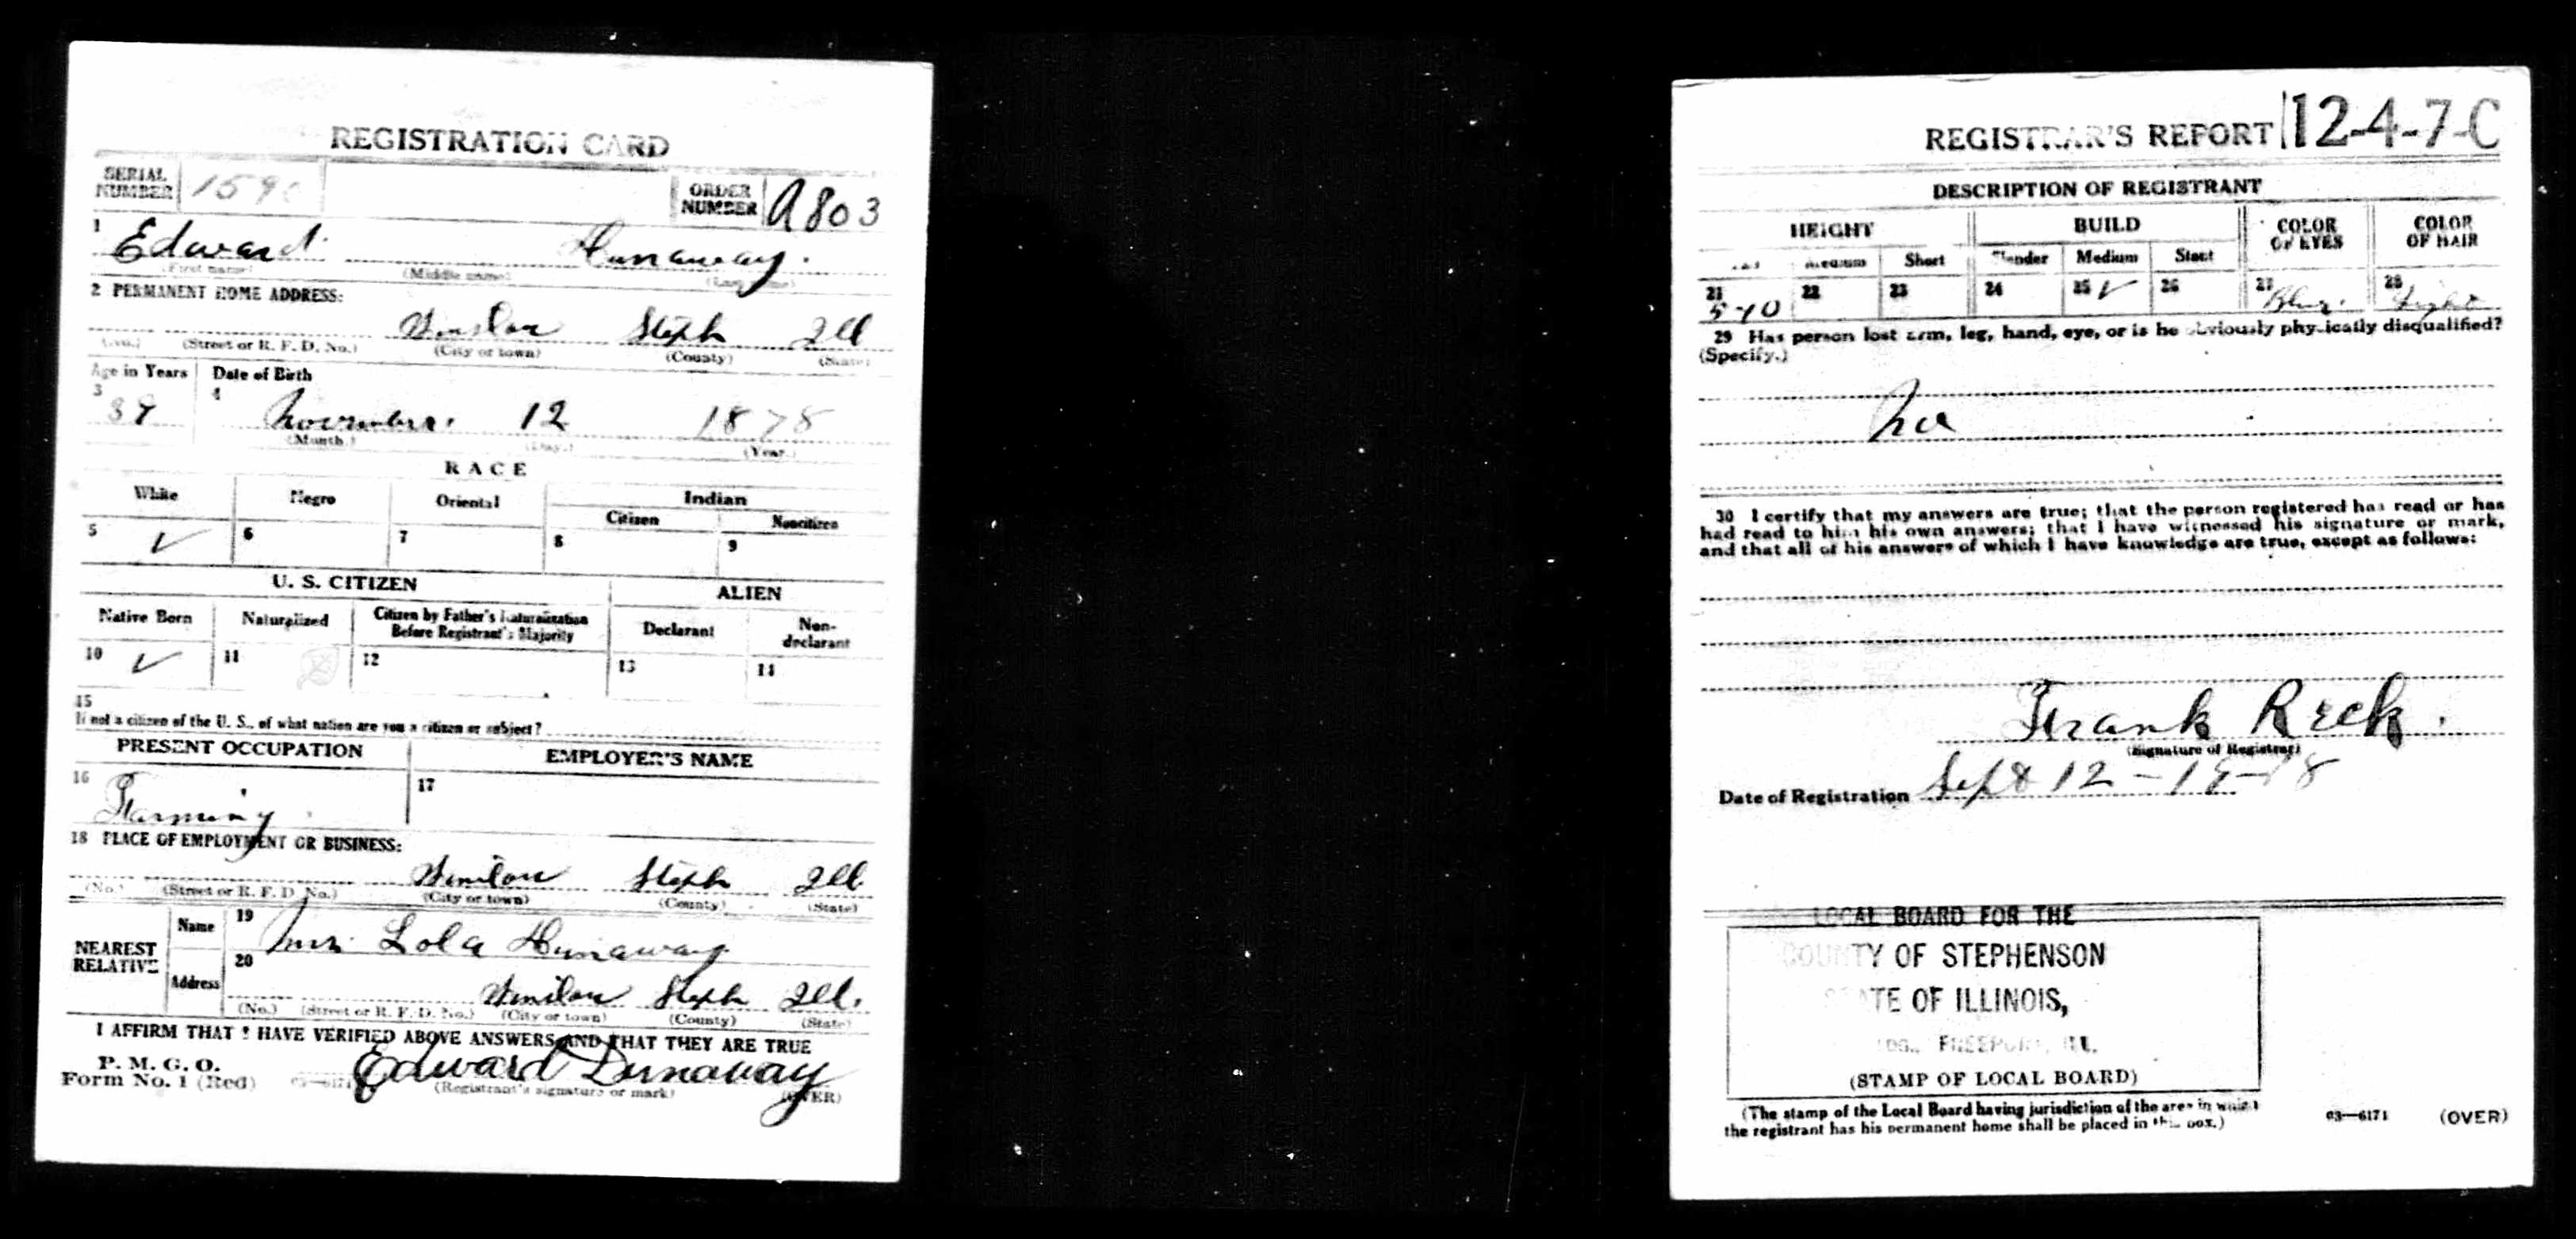 REGISTRATION CARD
SERIAL NUMBER 159
ORDER NUMBER A803
1 Edward Dunaway.
(First name) (Middle name) (Last name)
2 PERMANENT HOME ADDRESS:
Winslow Steph Ill
(No.) (Street or R. F. D. No.) (City or town) (County) (State)
Age in Years Date of Birth
3 39 4 November. 12 1878
(Month.) (Day.) (Year.)
RACE
White Negro Oriental Indian
Citizen Noncitizen
5 ✓ 6 7 8 9
U. S. CITIZEN ALIEN
Native Born Naturalized Citizen by Father's Naturalization Before Registrant's Majority Declarant Non-declarant
10 ✓ 11 12 13 14
15
If not a citizen of the U. S., of what nation are you a citizen or subject?
PRESENT OCCUPATION EMPLOYER'S NAME
16 Farming 17
18 PLACE OF EMPLOYMENT OR BUSINESS:
Winslow Steph Ill.
(No.) (Street or R. F. D. No.) (City or town) (County) (State)
NEAREST RELATIVE
Name 19 Mrs. Lola Dunaway
Address 20 Winslow Steph Ill.
(No.) (Street or R. F. D. No.) (City or town) (County) (State)
I AFFIRM THAT I HAVE VERIFIED ABOVE ANSWERS AND THAT THEY ARE TRUE
P. M. G. O.
Form No. 1 (Red) 03—6171 Edward Dunaway
(Registrant's signature or mark) (OVER)
REGISTRAR'S REPORT 12-4-7-C
DESCRIPTION OF REGISTRANT
HEIGHT BUILD COLOR OF EYES COLOR OF HAIR
Tall Medium Short Slender Medium Stout
21 5-10 22 23 24 25 ✓ 26 27 Blue. 28 Light
29 Has person lost arm, leg, hand, eye, or is he obviously physically disqualified?
(Specify.)
No
30 I certify that my answers are true; that the person registered has read or has
had read to him his own answers; that I have witnessed his signature or mark,
and that all of his answers of which I have knowledge are true, except as follows:
Frank Reck.
(Signature of Registrar)
Date of Registration Sept 12-19-18
LOCAL BOARD FOR THE
COUNTY OF STEPHENSON
STATE OF ILLINOIS,
FREEPORT, ILL.
(STAMP OF LOCAL BOARD)
(The stamp of the Local Board having jurisdiction of the area in which
the registrant has his permanent home shall be placed in this box.)
03—6171 (OVER)